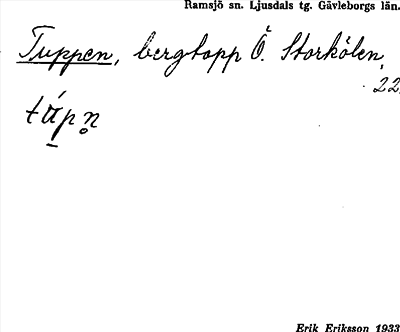 Ramsjö sn. Ljusdals tg. Gävleborgs län.
Tuppen, bergtopp Ö. Storkölen,
22.
Erik Eriksson 1933